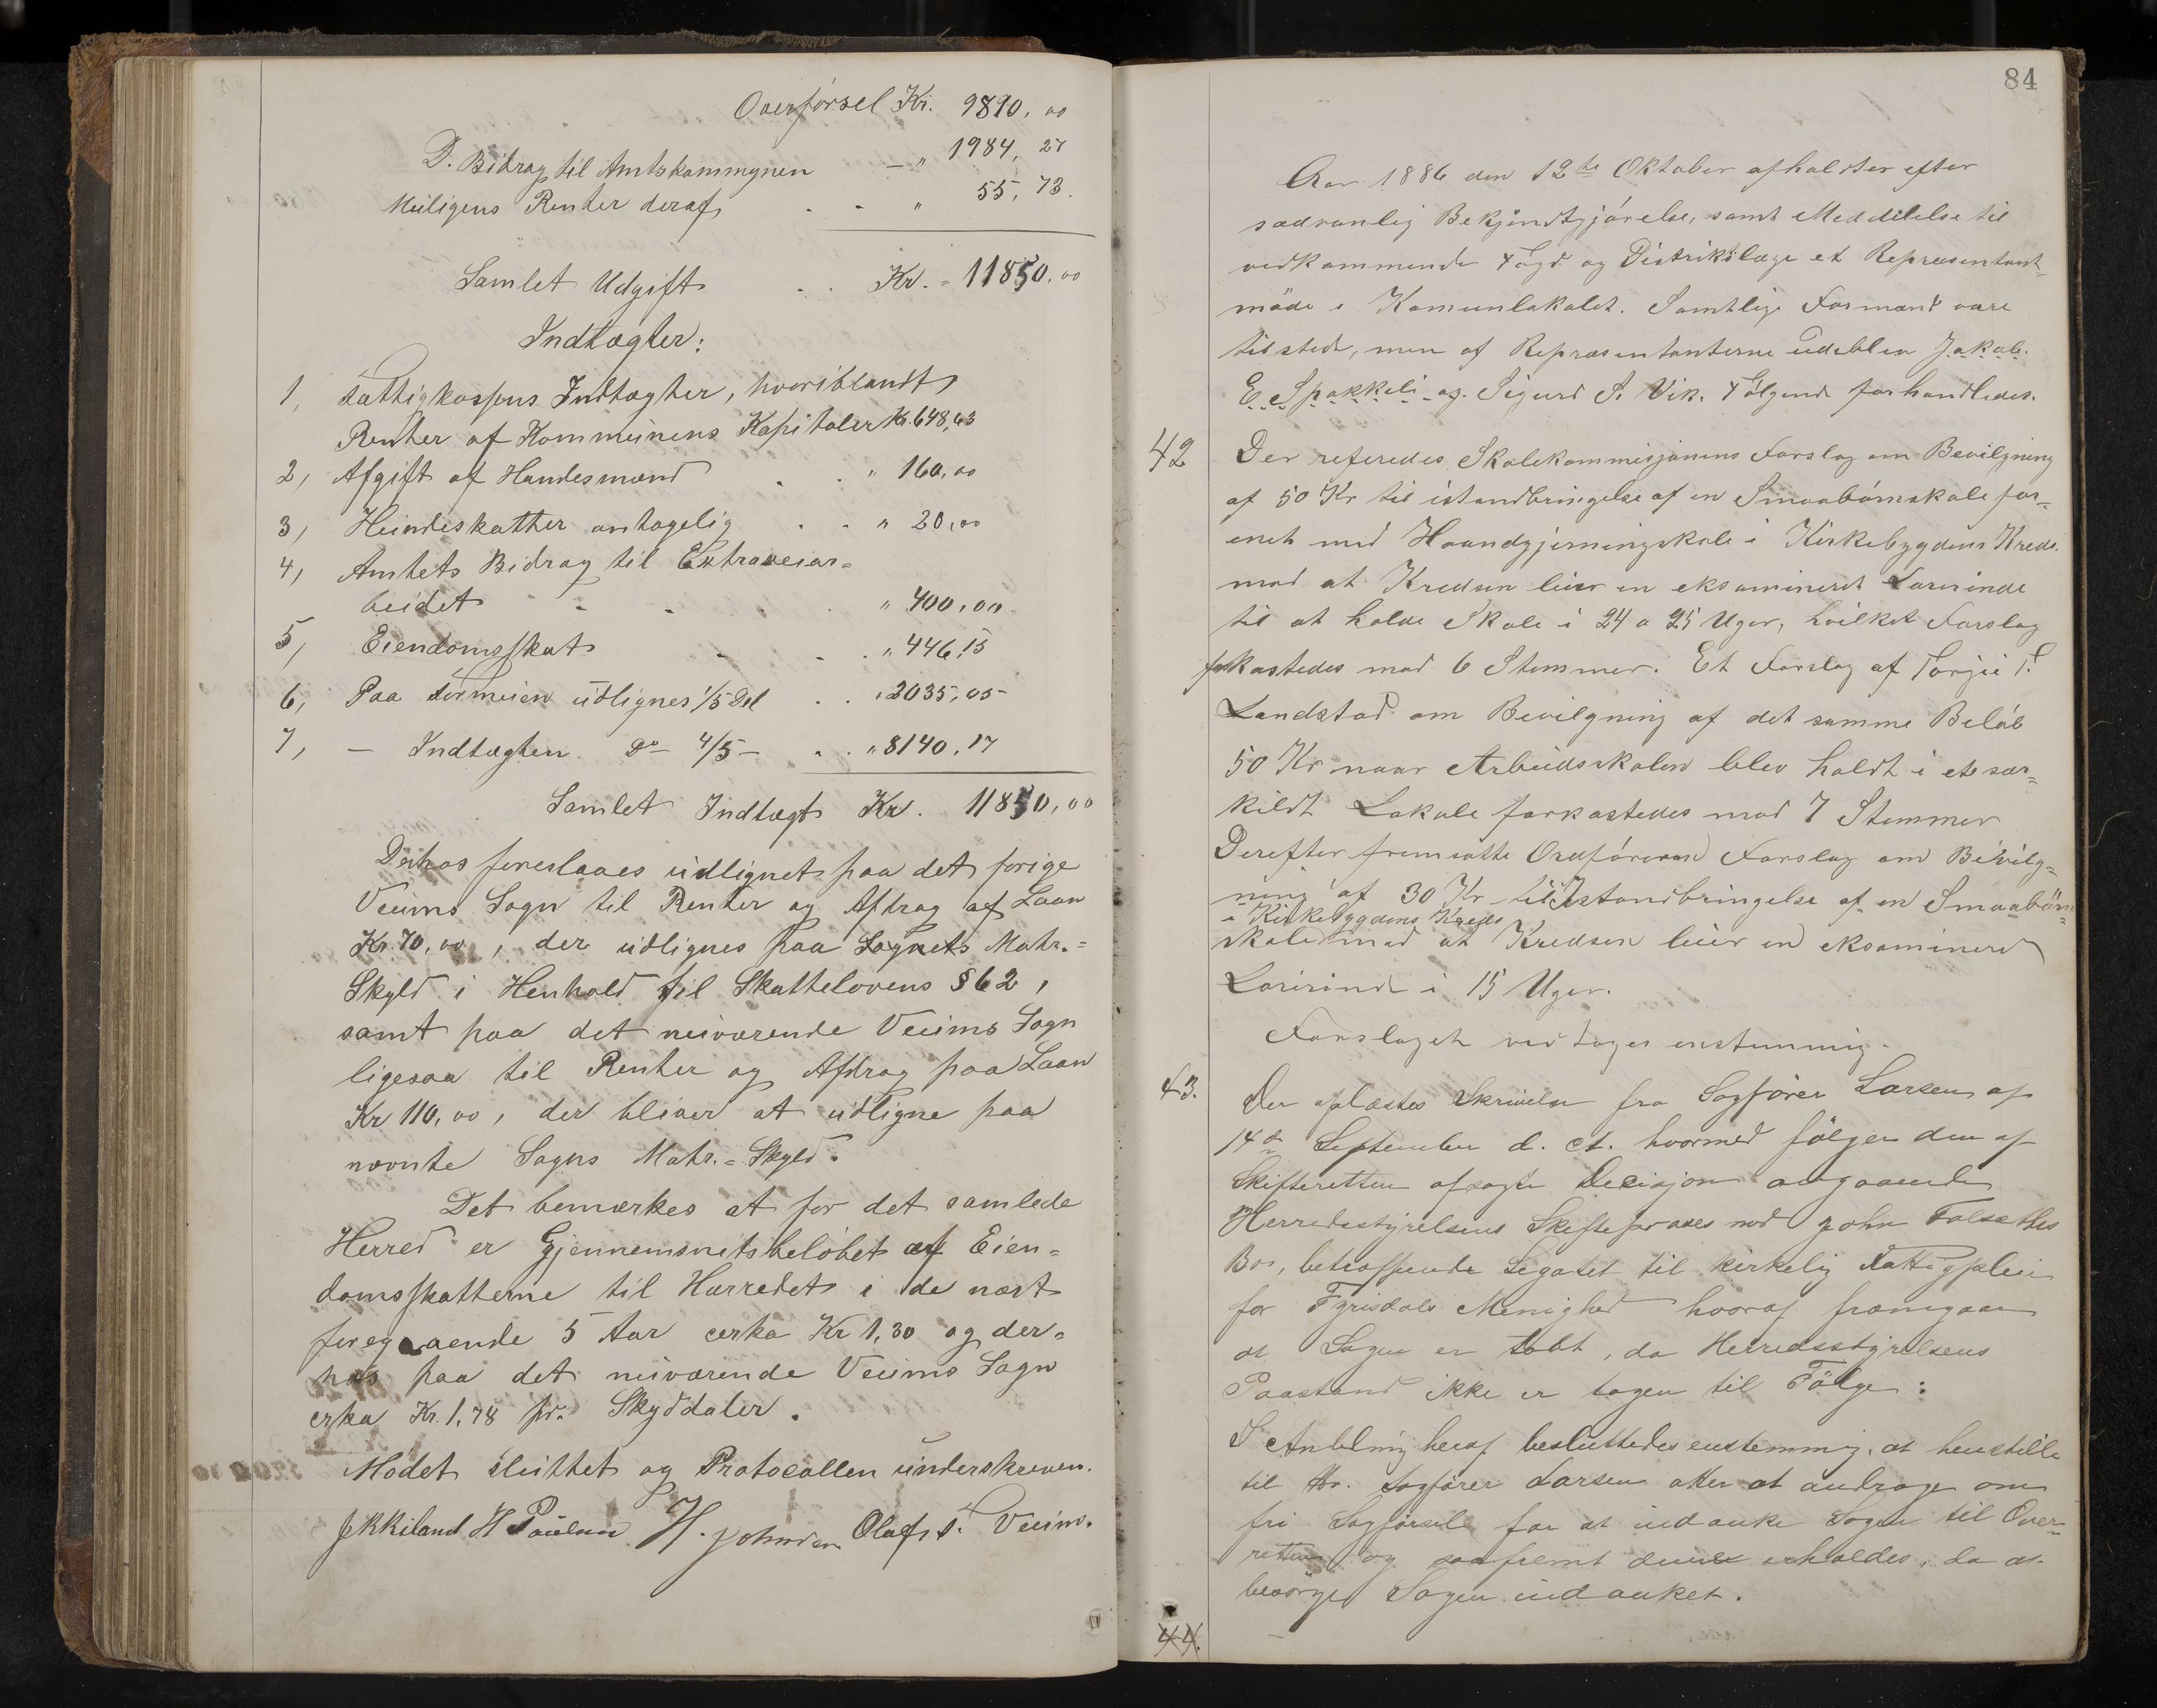 Overførsel Kr. 9890,00
D. Bidrag til Amtskommunen — " 1984,27
Muligens Renter deraf . - " 55,73.
Samlet Udgift . . Kr. = 11850.00
Indtægter:
1, Fattigkassens Indtægter, hvoriblandt
Renter af Kommunens Kapitaler Kr. 648,63
2, Afgift af Handesmænd . . " 160,00
3, Hundeskatter antagelig . . " 20,00
4, Amtets Bidrag til Extraveiar=
beidet - - . " 400,00
5, Eiendomsskat - - . " 446,15
6, Paa Formuen udlignes 1/5 Del . . " 2035,05
7, — Indtægten Do 4/5 — . . " 8140,17
Samlet Indtægt Kr. 11850,00
Derhos foreslaaes udlignet paa det forige
Veums Sogn til Renter og Afdrag af Laan
Kr. 70,00, der udlignes paa Sognets Matr.=
Skyld i Henhold til Skattelovens § 62,
samt paa det nuværende Veums Sogn
ligesaa til Renter og Afdrag paa Laan
Kr 110,00, der bliver at udligne paa
nævnte Sogns Matr.=Skyld.
Det bemærkes at for det samlede
Herred er Gjennemsnitsbeløbet af Eien=
domsskatterne til Herredet i de næst
foregaaende 5 Aar cirka Kr 1,30 og der=
hos paa det nuværende Veums Sogn
cirka Kr. 1,78 pr. Skylddaler.
Mødet sluttet og Protocollen underskreven.
H Paulsen H. Johnsen Olaf T. Veum.
84
Aar 1886 den 12te Oktober afholdtes efter
sædvanlig Bekjendtgjørelse, samt Meddelelse til
vedkommende Fogd og Distriktslæge et Repræsentant=
møde i Komunlokalet. Samtlige Formænd vare
tilstede, men af Repræsentanterne udeblev Jakob
E Spokkeli og Sigurd S. Vik. Følgende forhandledes.
42 Der referedes Skolekommisjonens Forslag om Bevilgning
af 50 Kr til istandbringelse af en Smaabørnskole for=
enet med Haandgjerningskole i Kirkebygdens Kreds
mod at Kredsen leier en eksamineret Lærerinde
til at holde Skole i 24 a 25 Uger, hvilket Forslag
forkastedes mod 6 Stemmer. Et Forslag af Torjei T.
Landstad om Bevilgning af det samme Beløb
50 Kr naar Arbeidsskolen blev holdt i et sær=
kildt Lokale forkastedes mod 7 Stemmer
Derefter fremsatte Ordføreren Forslag om Bevilg=
ning af 30 Kr til Istandbringelse af en Smaabørn=
i Kirkebygdens Kreds
skole mod at Kredsen leier en eksamineret
Lærerinde i 15 Uger.
Forslaget vedtoges enstemmig.
43. Der oplæstes Skrivelse fra Sagfører Larsen af
14de September d. A. hvormed følger den af
Skifteretten afsagte Decisjon angaaende
Herredsstyrelsens Skifteproces mod John Folsæthes
Bo, betræffende Legatet til kirkelig Fattigpleie
for Fyrisdals Menighed hvoraf fræmgaar
at Sagen er tabt, da Herredsstyrelsens
Paastand ikke er tagen til Følge:
I Anledning heraf besluttedes enstemmig, at henstille
til Hr. Sagfører Larsen atter at andrage om
fri Sagførsel for at indanke Sagen til Over=
retten og saafremt denne erholdes, da at
besørge Sagen indanket.
44.